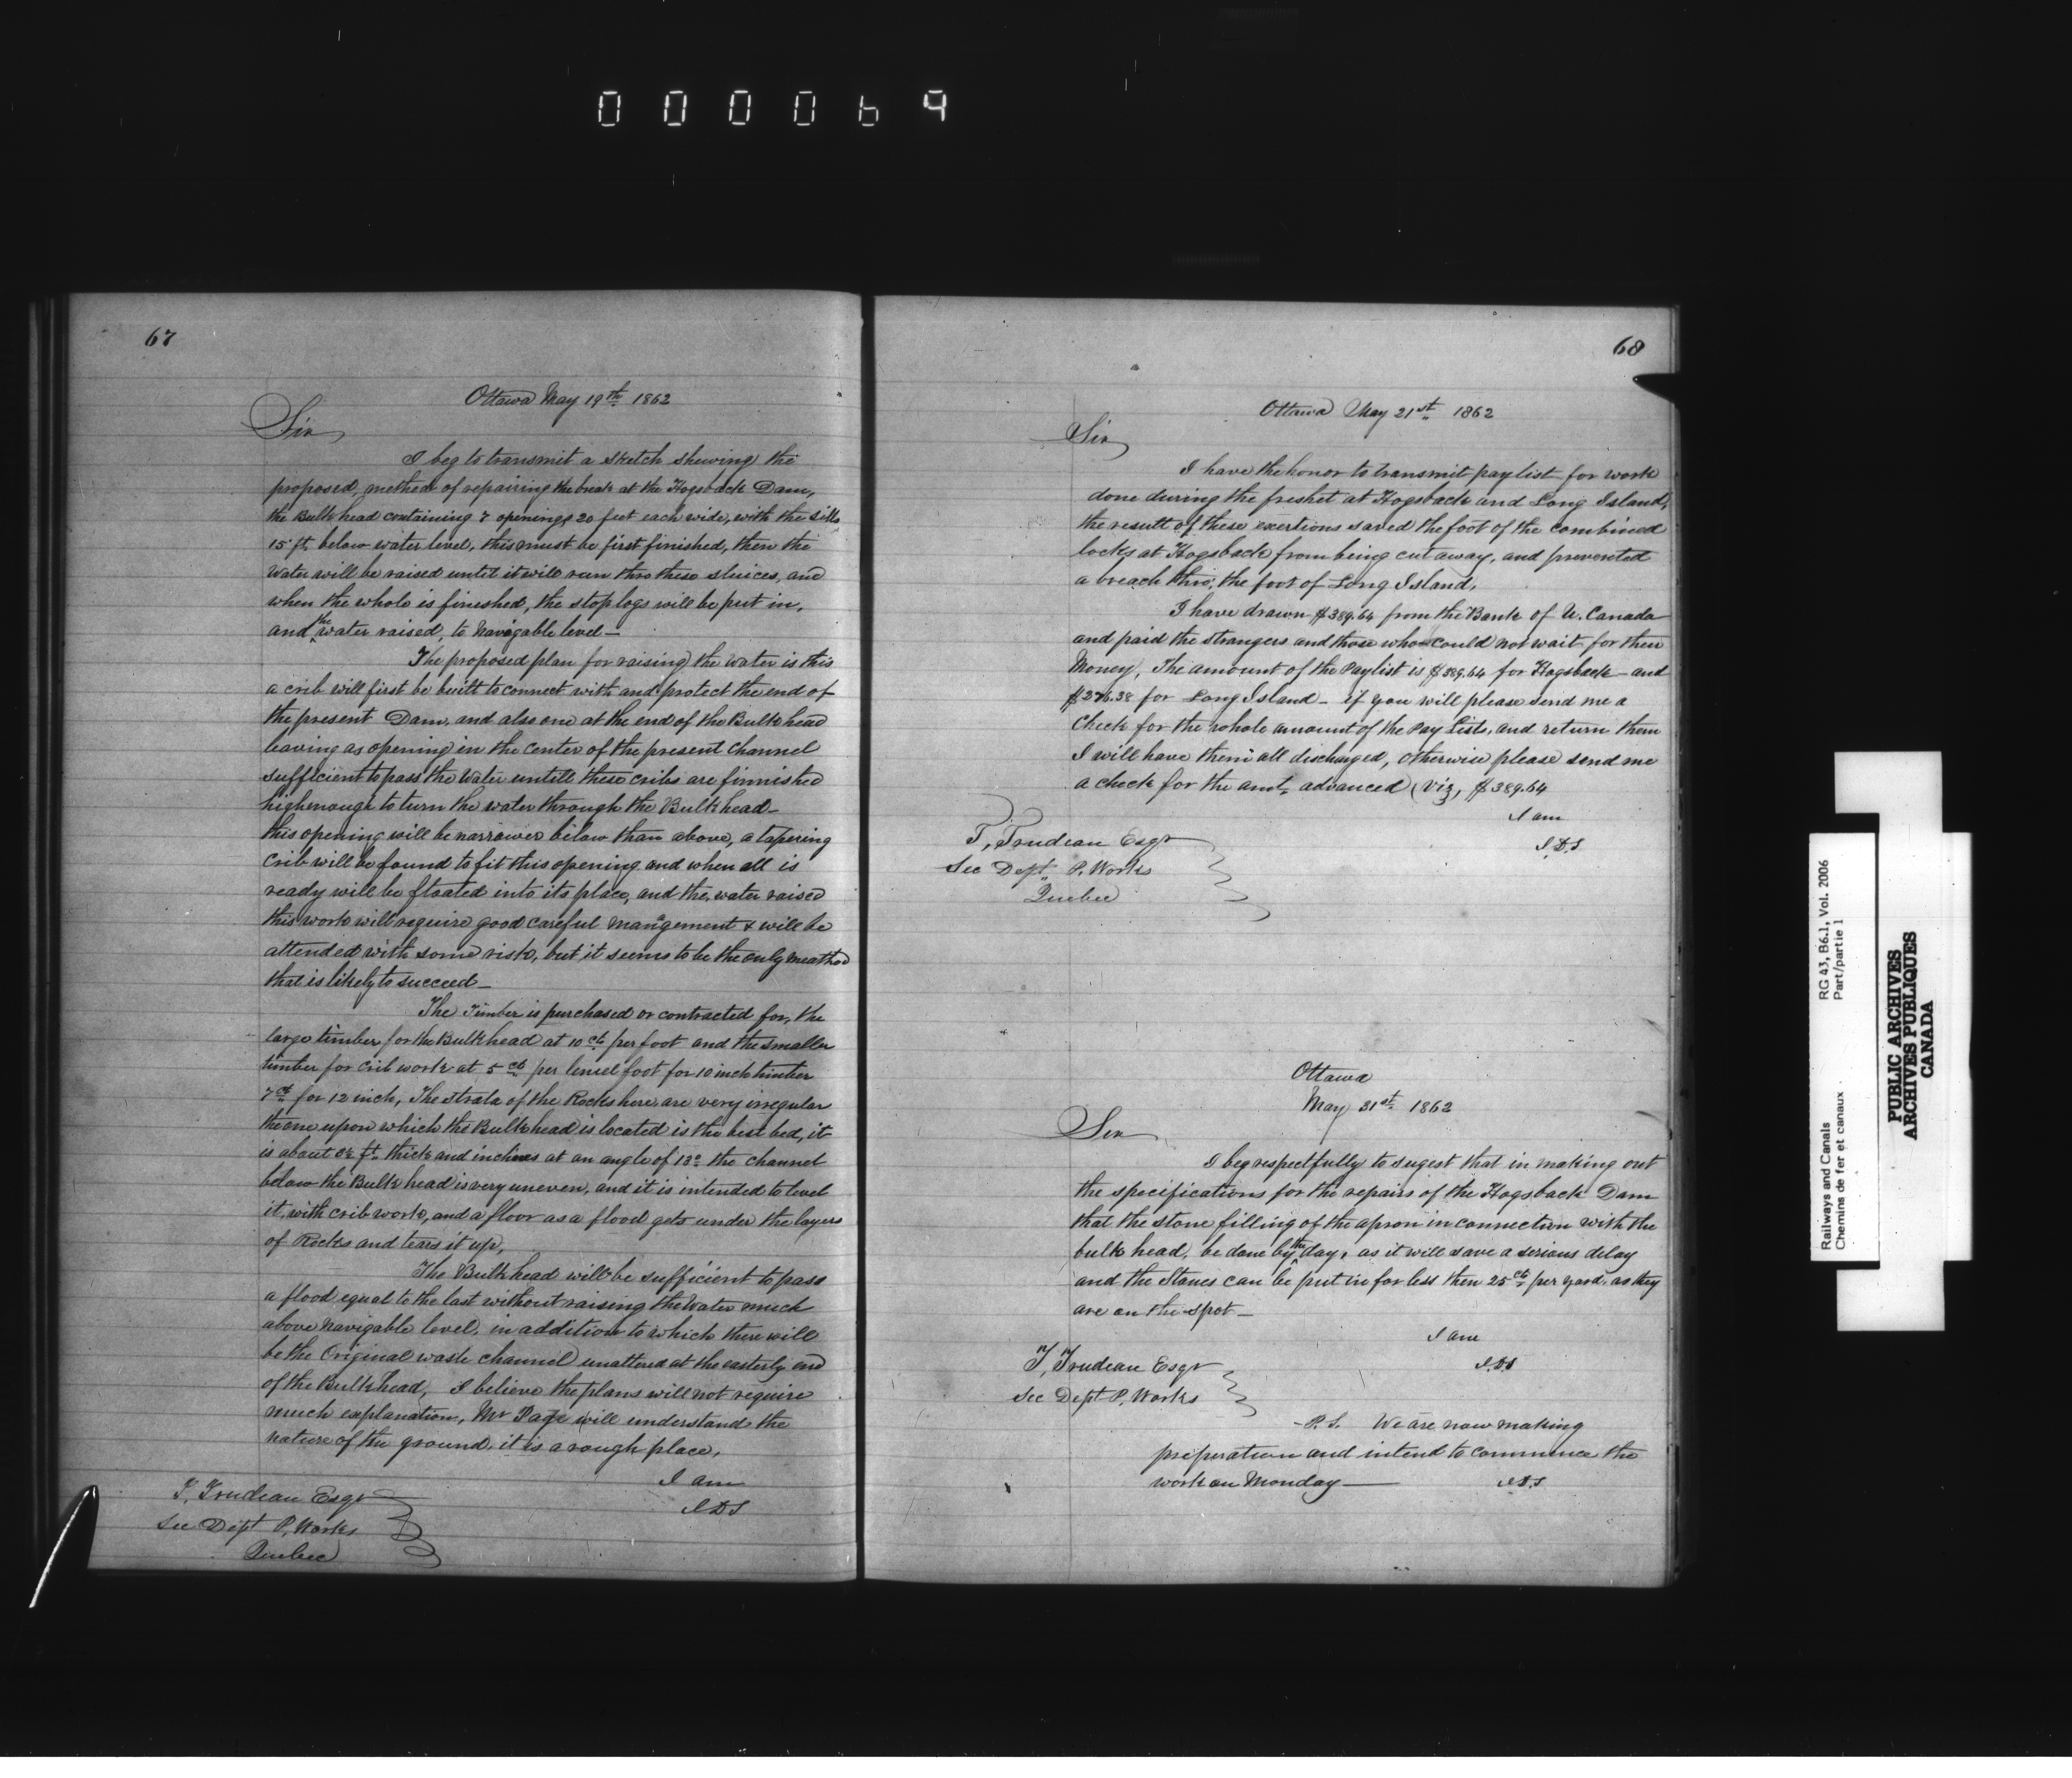 000069
67
Ottawa May 19th 1862
Sir
I beg to transmit a sketch shewing the
proposed, method of repairing the break at the Hogsback Dam,
the Bulkhead containing 7 openings 20 feet each wide, with the sills
15 ft. below water level, this must be first finished, then the
Water will be raised until it will run thro these sluices, and
when the whole is fineshed, the stop logs will be put in,
and the water raised, to Navigable level—
The proposed plan for raising the water is this
a crib will first be built to connect with and protect the end of
the present Dam, and also one at the end of the Bulkhead
leaving as opening in the center of the present Channel
sufficient to pass the Water untill these cribs are finnished
highenough to turn the water through the Bulkhead—
this opening will be narrower bilow than above, a tapering
Crib will be found to fit this opening and when all is
ready will be floated into its place, and the water raised
this work will require good careful management & will be
attended with some risk, but it seems to be the only meathod
that is likely to succeed—
The Timber is purchased or contracted for, the
large timber for the Bulkhead at 10 cts per foot and the smaller
timber for crib work at 5 cts per lineel foot for 10 inch timber
7 cts for 12 inch, The strata of the Rocks here are very irregular
the one upon which the Bulkhead is located is the best bed, it
is about ft. thick and inclines at an angle of 13° the channel
below the Bulkhead is very uneven, and it is intended to level
it, with crib work, and a floor as a flood gets under the layers
of Rocks and tears it up,
The Bulkhead will be sufficient to pass
a flood equal to the last without raising the Water much
above navigable level, in addition to which there will
be the Original waste channel unaltered at the easterly end
of the Bulkhead, I believe the plans will not require
much explanation, Mr Page will understand the
nature of the ground, it is a rough place,
I am
J.D.S
T, Trudeau Esqr
Sec Dept P, Works
Quebec
68
Ottawa May 21st 1862
Sir
I have the honor to transmit pay list for work
done during the freshet at Hogsback and Long Island,
the result of these exertions saved the foot of the combined
locks at Hogsback from being cut away, and prevented
a breach thro' the foot of Long Island,
I have drawn $389.64 from the Bank of U. Canada
and paid the strangers and those who could not wait for their
Money, The amount of the Paylist is $389.64 for Hogsback and
$276.38 for Long Island— if you will please send me a
Check for the whole amount of the Pay Lists, and return them
I will have them all discharged, otherwise please send me
a check for the amt, advanced (Viz, $389.64
I am
J.D.S
T, Trudeau Esqr
Sec Dept, P. Works
Quebec
Ottawa
May 31st 1862
Sir
I beg respectfully to sugest that in making out
the specifications for the repairs of the Hogsback Dam
that the stone filling of the apron in connection with the
bulk head, be done by the day, as it will save a serious delay
and the Stones can be put in for less then 25 cts per yard, as they
are on the spot—
I am
J.D.S
T, Trudeau Esqr
Sec Dept P, Works
P.S. We are now making
preperation and intend to commence the
work on Monday—
J.D.S
Railways and Canals
Chemins de fer et canaux
RG 43, B6.1, Vol. 2006
Part/partie 1
PUBLIC ARCHIVES
ARCHIVES PUBLIQUES
CANADA